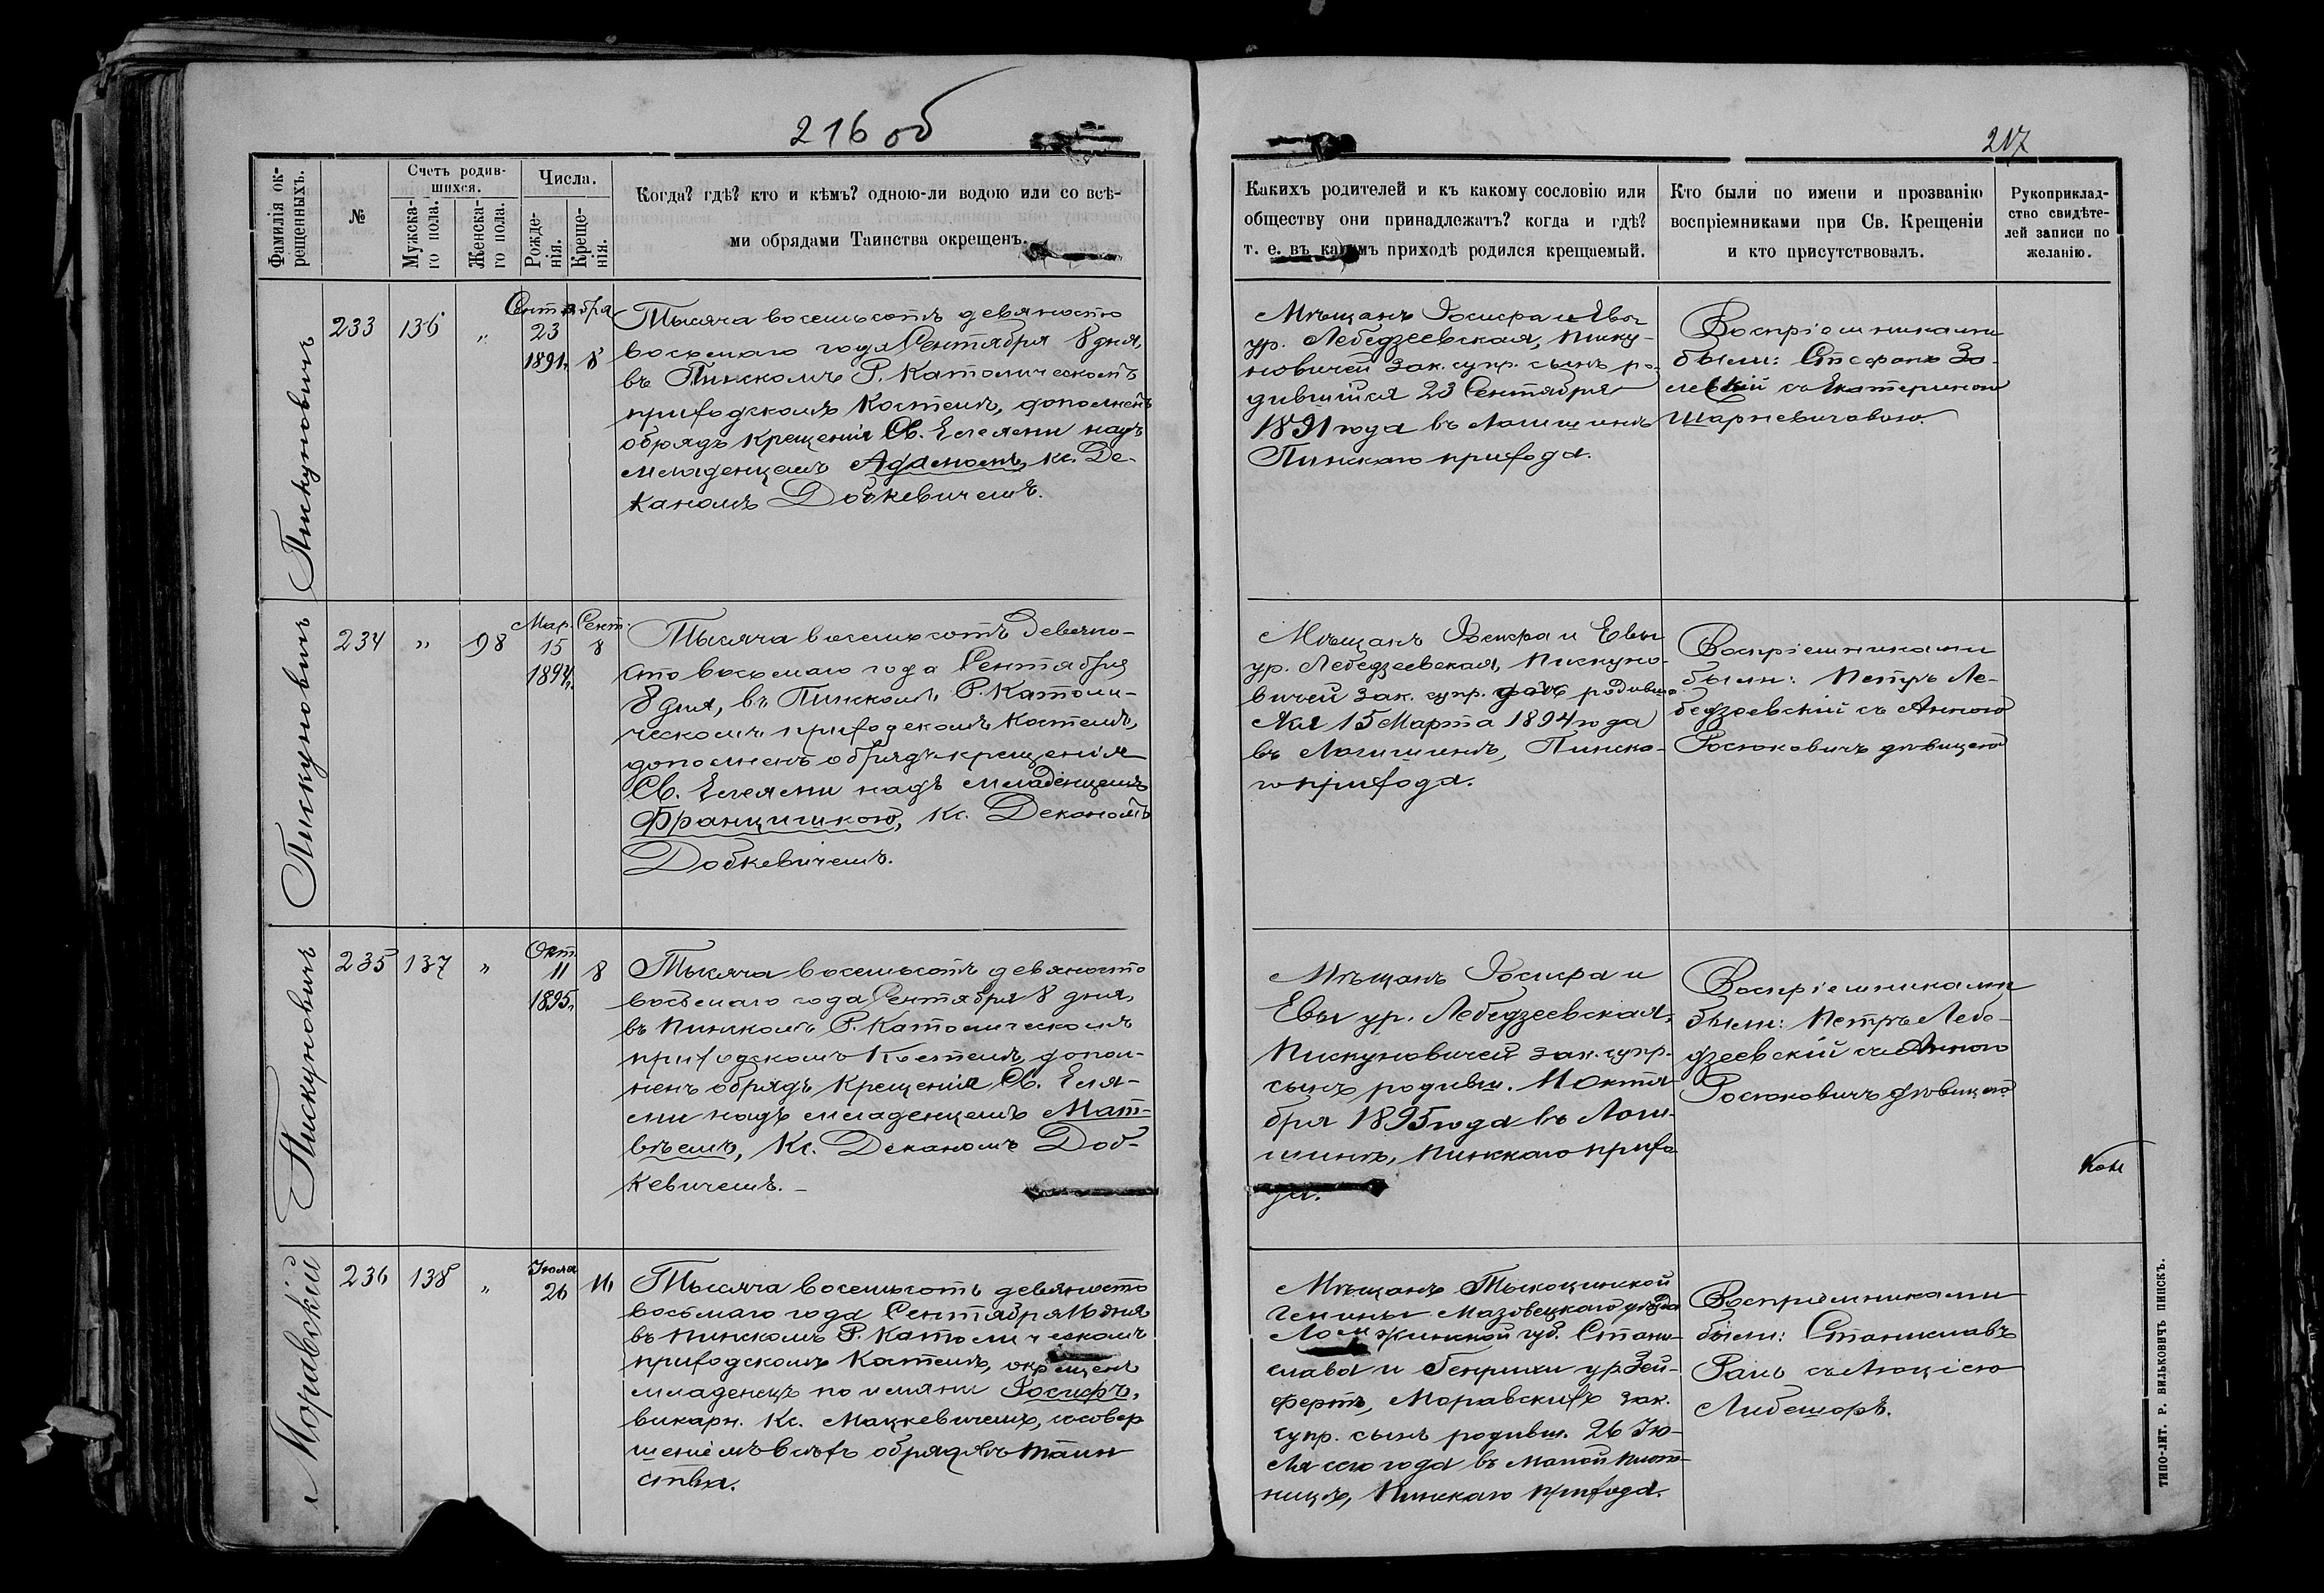 216 об
Фамилія ок-
рещенныхъ.
№
Счетъ родив-
шихся.
Мужска-
го пола.
Женска-
го пола.
Числа.
Рожде-
нія.
Креще-
нія.
Когда? гдѣ? кто и кѣмъ? одною-ли водою или со всѣ-
ми обрядами Таинства окрещенъ.
Пискуновичъ
233
136
"
Сентября
23
1891г.
8
Тысяча восемьсотъ девяносто
восьмаго года Сентября 8 дня,
въ Пинскомъ Р. Католическомъ
приходскомъ Костелѣ, дополненъ
обрядъ крещенія Св. Елеями надъ
младенцемъ Адамомъ, Кс. Де-
каномъ Добкевичемъ.
Пискуновичъ
234
"
98
Мар.
15
1894г.
Сент.
8
Тысяча восемьсотъ девяно-
сто восьмаго года Сентября
8 дня, въ Пинскомъ Р. Католи-
ческомъ приходскомъ Костелѣ,
дополненъ обрядъ крещенія
Св. Елеями надъ младенцемъ
Францишкою, Кс. Деканомъ
Добкевичемъ.
Пискуновичъ
235
137
"
Окт.
11
1895г.
8
Тысяча восемьсотъ девяносто
восьмаго года Сентября 8 дня,
въ Пинскомъ Р. Католическомъ
приходскомъ Костелѣ, допол-
ненъ обрядъ Крещенія Св. Еле-
ями надъ младенцемъ Мат-
вѣемъ, Кс. Деканомъ Доб-
кевичемъ. –
Моравскій
236
138
"
Іюля
26
16
Тысяча восемьсотъ девяносто
восьмаго года Сентября 16 дня
въ Пинскомъ Р. Католическомъ
приходскомъ Костелѣ, окрещенъ
младенецъ по имяни Іосифъ,
викарн. Кс. Мацкевичемъ, съ совер
шеніемъ всѣхъ обрядовъ таин
ства.
217
Какихъ родителей и къ какому сословію или
обществу они принадлежатъ? когда и гдѣ?
т. е. въ какомъ приходѣ родился крещаемый.
Кто были по имени и прозванію
воспріемниками при Св. Крещеніи
и кто присутствовалъ.
Рукоприклад-
ство свидѣте-
лей записи по
желанію.
Мѣщанъ Іосифа и Евы
ур. Лебедзеевская, Писку-
новичей зак. супр. сынъ ро-
дившійся 23 Сентября
1891 года въ Логишинѣ
Пинскаго прихода.
Воспріемниками
были: Стефанъ За-
съ Екатериною
Шарневичовою.
Мѣщанъ Іосифа и Евы
ур. Лебедзеевская, Пискуно-
вичей зак. супр. дочь родивша
яся 15 Марта 1894 года
въ Логишинѣ, Пинска-
го прихода.
Воспріемниками
были: Петръ Ле-
бедзеевскій съ Анною
Росюковичъ дѣвицею
Мѣщанъ Іосифа и
Евы ур. Лебедзеевская,
Пискуновичей зак. супр.
сынъ родивш. 11 Октя-
бря 1895 года въ Логи-
шинѣ, Пинскаго прихо-
да.
Воспріемниками
были: Петръ Лебе-
дзеевскій съ Анною
Росюковичъ дѣвицею
Мѣщанъ Тыкоцинской
Гмины Мазовецкаго уѣзда
Ломжинской губ. Стани-
слава и Генрики ур. Зей-
фертъ, Моравскихъ зак.
супр. сынъ родивш. 26 Ію-
ля сего года въ Малой Плот-
ницѣ, Пинскаго прихода.
Воспріемниками
были: Станиславъ
съ Люціею
ТИПО-ЛИТ. Р. ВИЛЬКОВИЧЪ ПИНСКЪ.